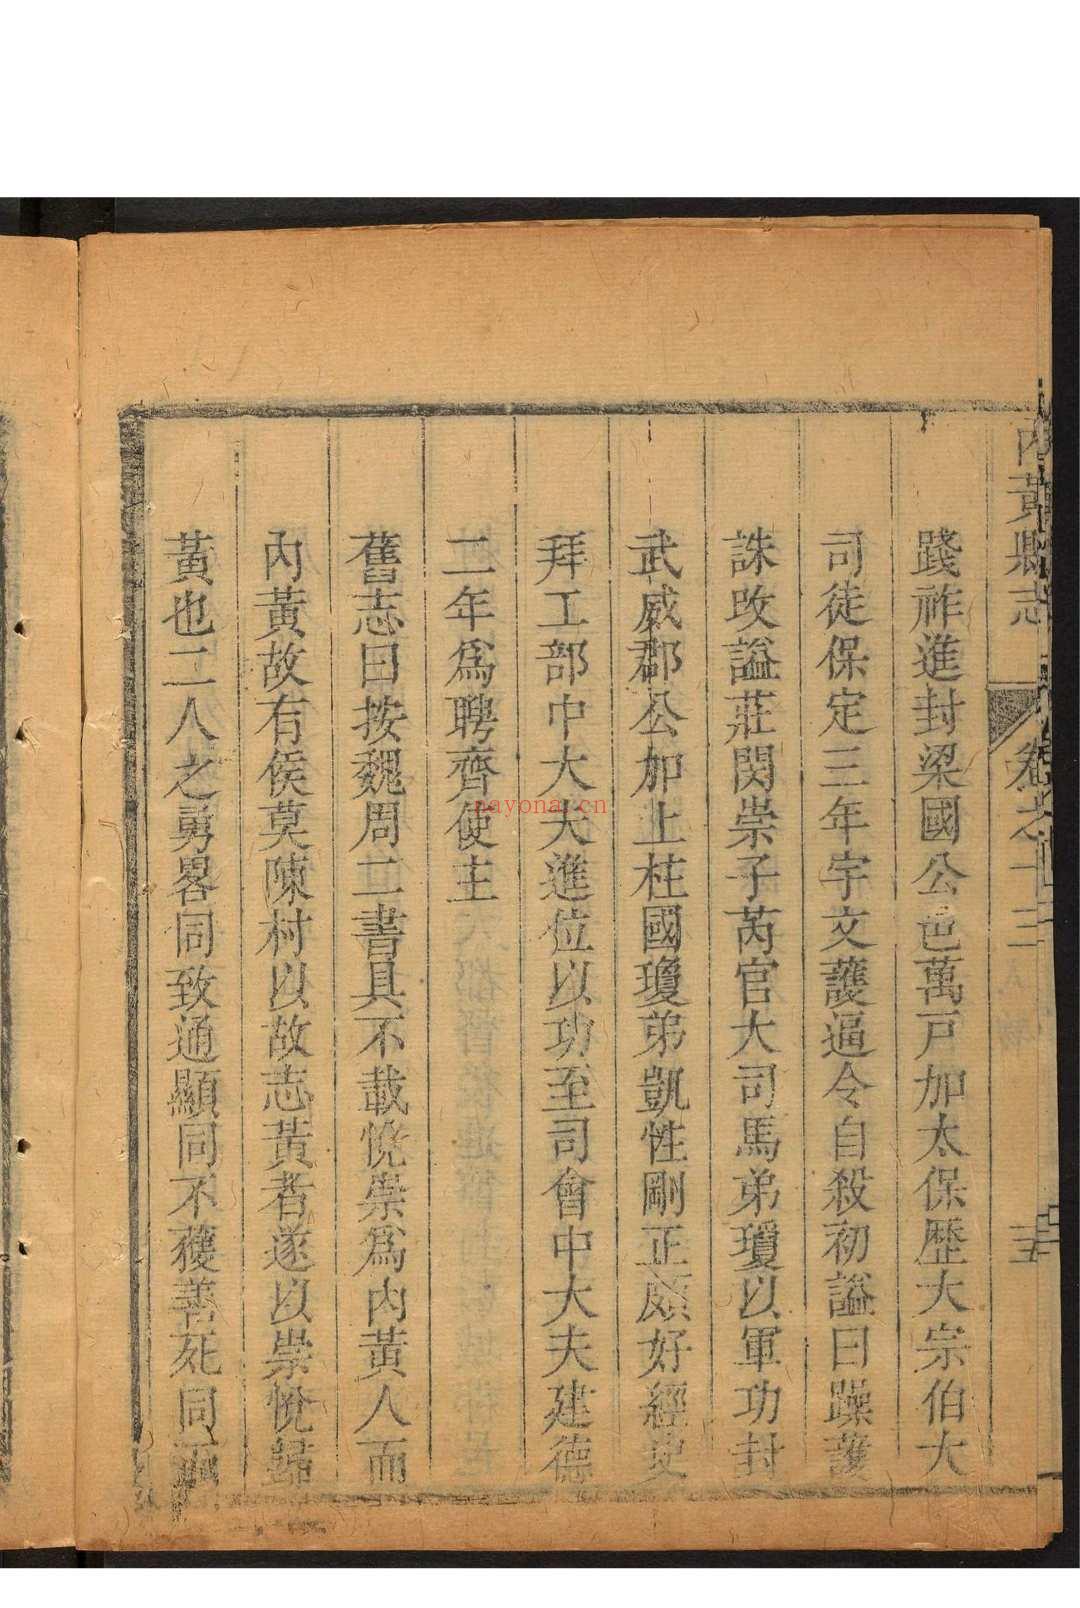 內黃縣志 卷之十三 三
踐祚進封梁國公邑萬戸加太保歷大宗伯大
司徒保定三年宇文護逼令自殺初謚曰躁護
誅改謚莊閔崇子芮官大司馬弟瓊以軍功封
武威郡公加上柱國瓊弟凱性剛正頗好經史
拜工部中大夫進位以功至司會中大夫建德
二年爲聘齊使主
舊志曰按魏周二書具不載悅崇爲內黃人而
內黃故有侯莫陳村以故志黃者遂以崇悅歸
黃也二人之勇畧同致通顯同不獲善死同
nayona.cn